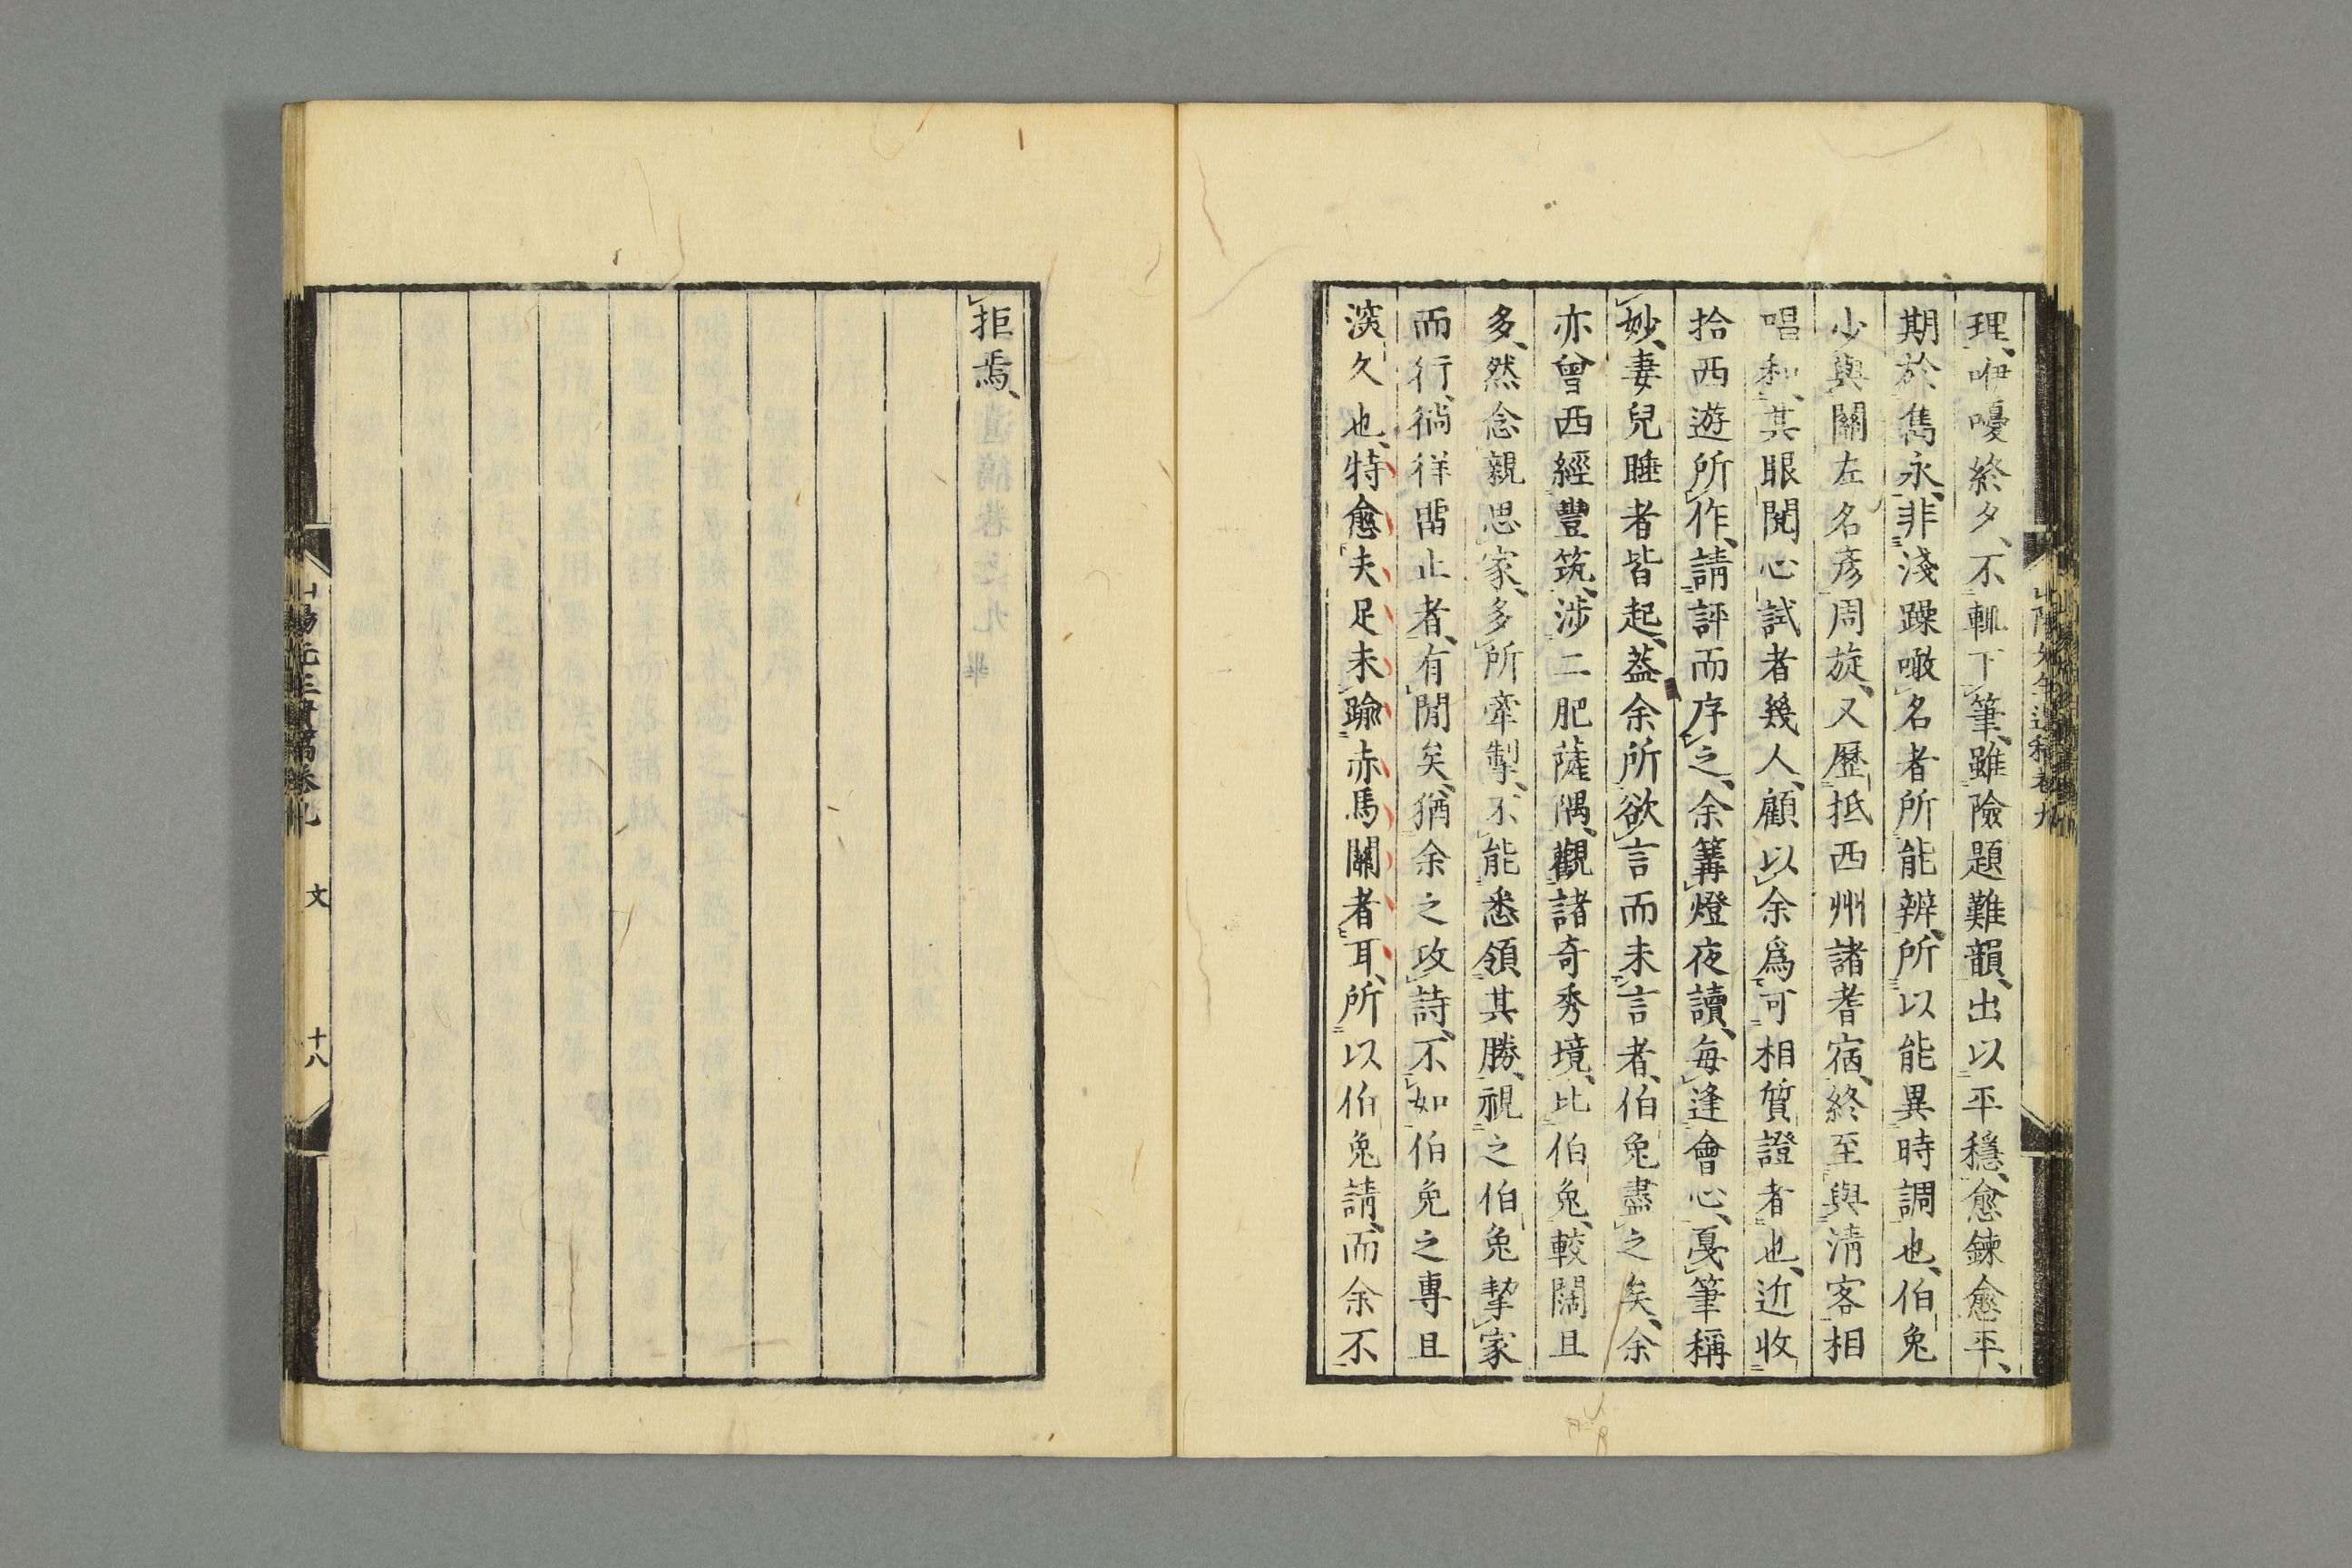 理、咿嚘終夕、不輒下筆、雖險題難韻、出以平穩、愈鍊愈平、
期於雋永、非淺躁噉名者所能辨、所以能異時調也、伯兔
少與關左名彥周旋、又歷抵西州諸耆宿、終至與淸客相
唱和、其眼閱心試者幾人、顧以余爲可相質證者也、近收
拾西遊所作、請評而序之、余篝燈夜讀、每逢會心、戛筆稱
妙、妻兒睡者皆起、葢余所欲言而未言者、伯兔盡之矣、余
亦曾西經豐筑、涉二肥薩隅、觀諸奇秀境、比伯兔、較闊且
多、然念親思家、多所牽掣、不能悉領其勝、視之伯兔挈家
而行、徜徉畱止者、有閒矣、猶余之攻詩、不如伯兔之專且
淡久也、特愈夫足未踰赤馬關者耳、所以伯兔請、而余不
拒焉、
山陽先生遺稿卷九
文
十八